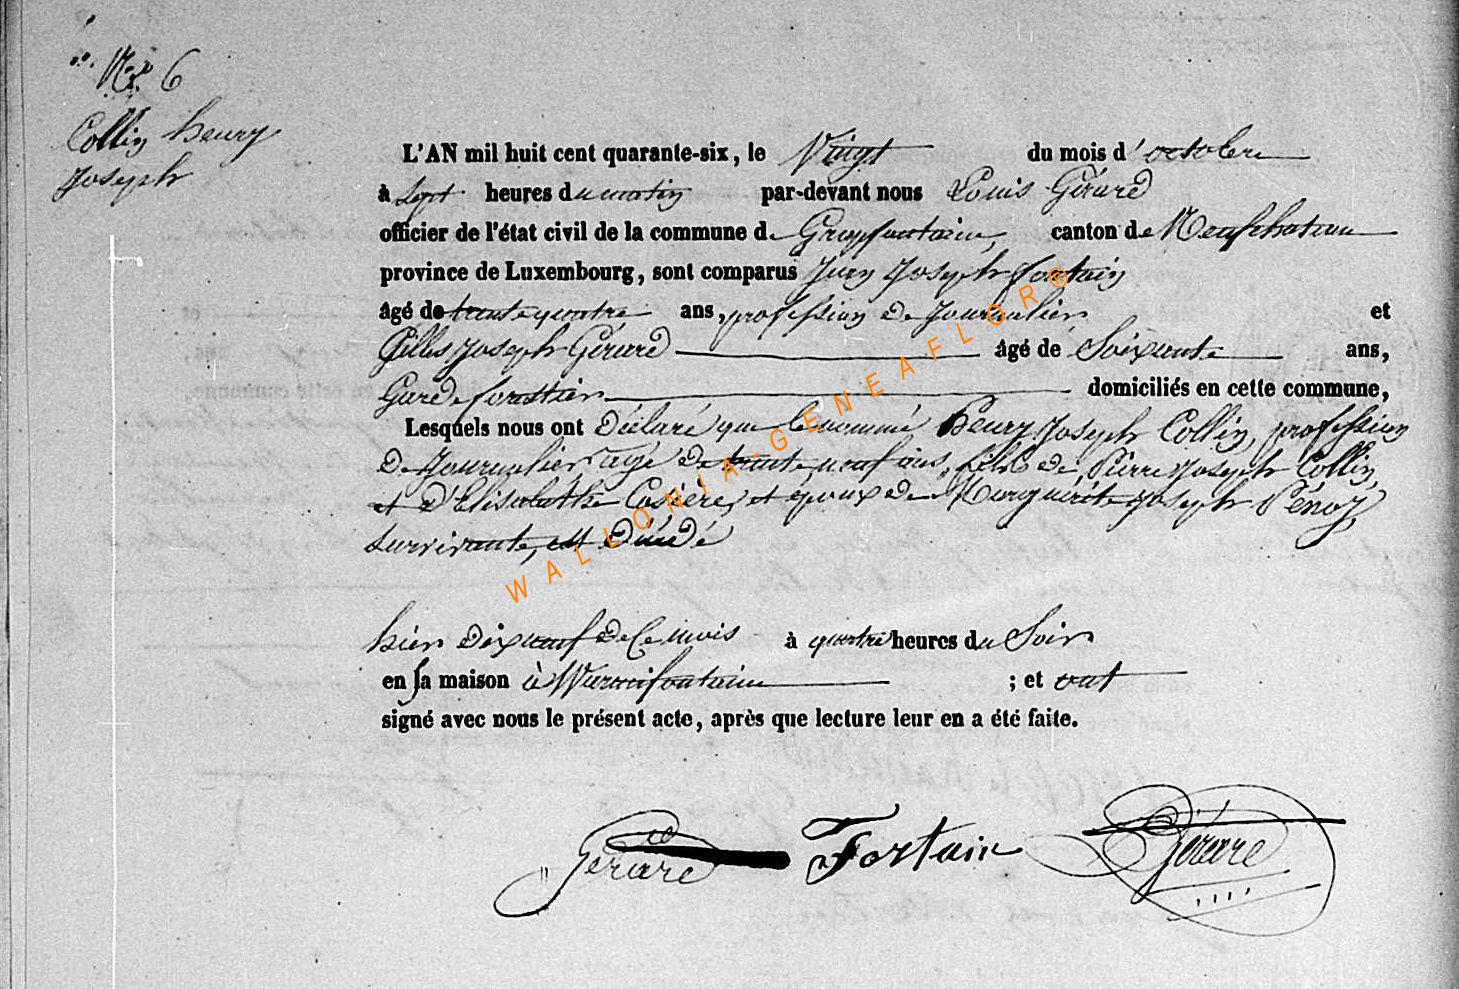 N° 6
Collin henry
Joseph
L'AN mil huit cent quarante-six, le Vingt du mois d'octobre
à sept heures du matin par-devant nous Louis Gérard
officier de l'état civil de la commune de Grapfontaine, canton de Neufchateau
province de Luxembourg, sont comparus Jean Joseph fortain
âgé de trente quatre ans, profession de Journalier et
Gilles Joseph Gérard âgé de Soixante ans,
Garde forestier domiciliés en cette commune,
Lesquels nous ont Déclaré que le nommé henry Joseph Collin, profession
de Journalier agé de trente neuf ans, fils de Pierre Joseph Collin,
et d'Elisabeth et époux de Marguérite Joseph
survivante, est Décédé
hier Dixneuf de Ce mois à quatre heures du Soir
en sa maison à Warmifontaine ; et ont
signé avec nous le présent acte, après que lecture leur en a été faite.
Gérard Fortain Gérard
WALLONIA-GENEAFLOR®